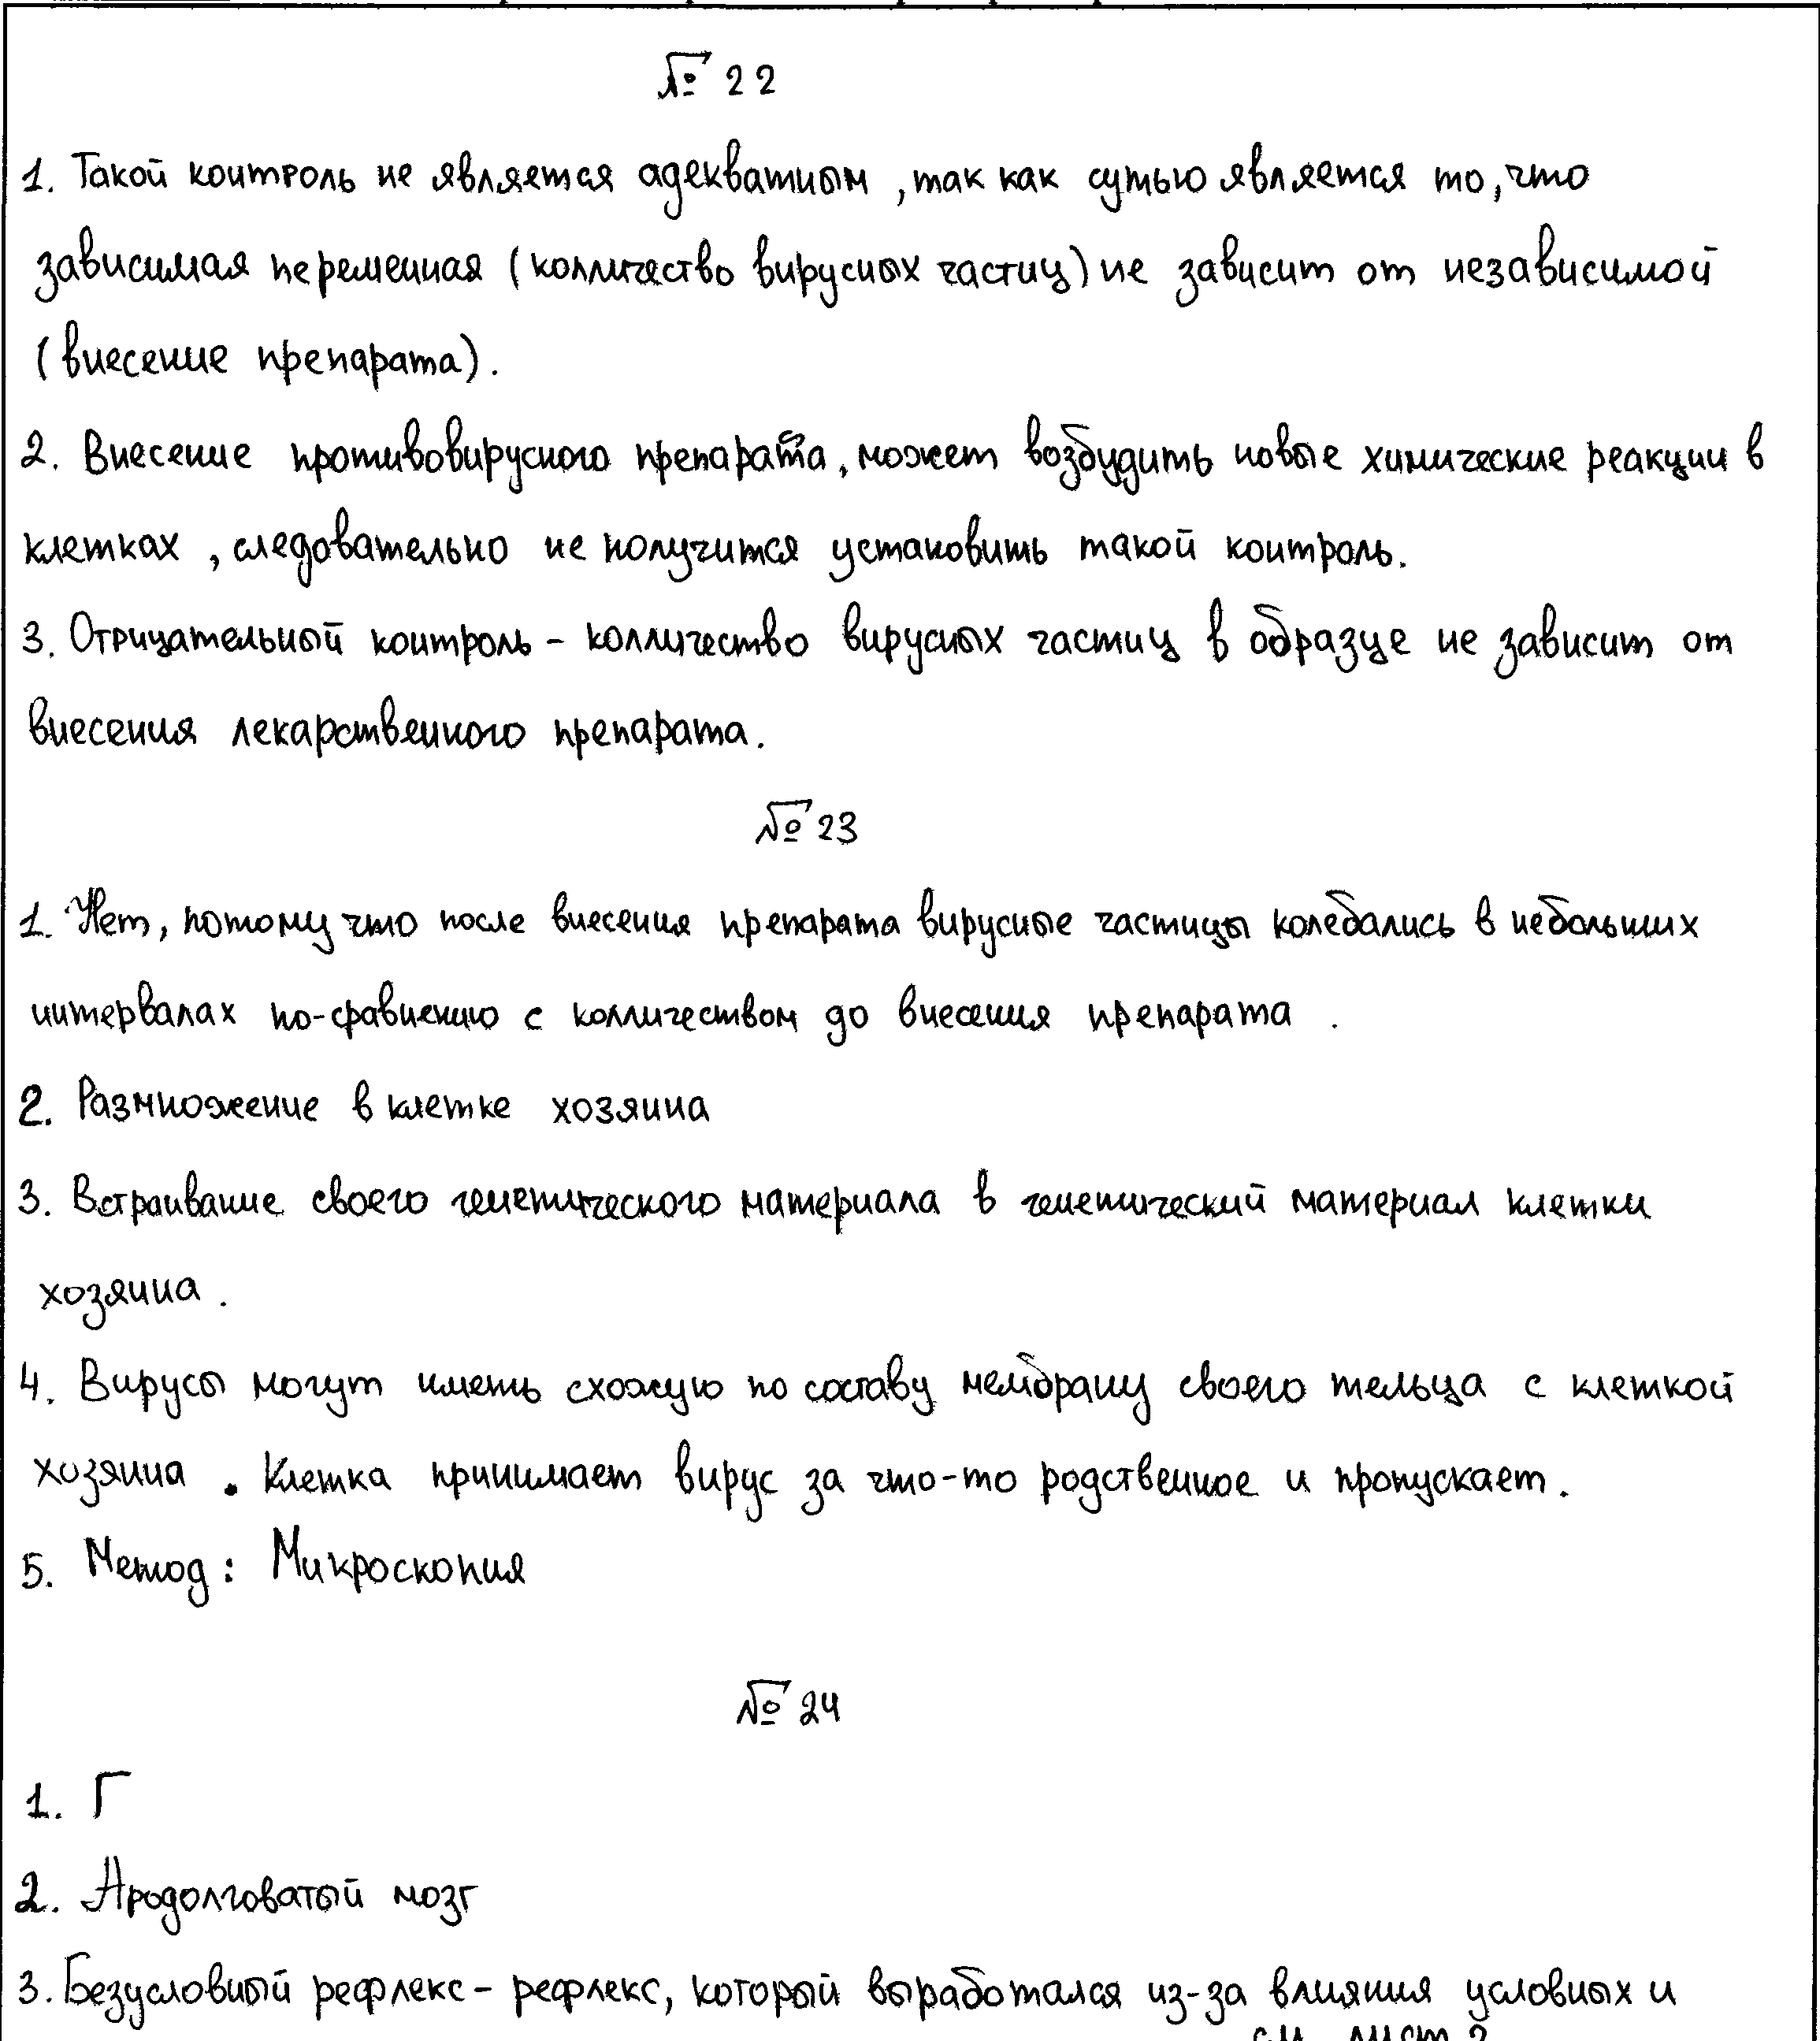 № 22
1. Такой контроль не является адекватным, так как сутью является то, что
зависимая переменная (колличество вирусных частиц) не зависит от независимой
(внесение препарата).
2. Внесение противовирусного препарата, может возбудить новые химические реакции в
клетках, следовательно не получится установить такой контроль.
3. Отрицательный контроль - колличество вирусных частиц в образце не зависит от
внесения лекарственного препарата.
№ 23
1. Нет, потому что после внесения препарата вирусные частицы колебались в небольших
интервалах по-сравнению с колличеством до внесения препарата.
2. Размножение в клетке хозяина
3. Встраивание своего генетического материала в генетический материал клетки
хозяина.
4. Вирусы могут иметь схожую по составу мембрану своего тельца с клеткой
хозяина. Клетка принимает вирус за что-то родственное и пропускает.
5. Метод: Микроскопия
№ 24
1. Г
2. Продолговатый мозг
3. Безусловный рефлекс - рефлекс, который выработался из-за влияния условных и
см. лист 2